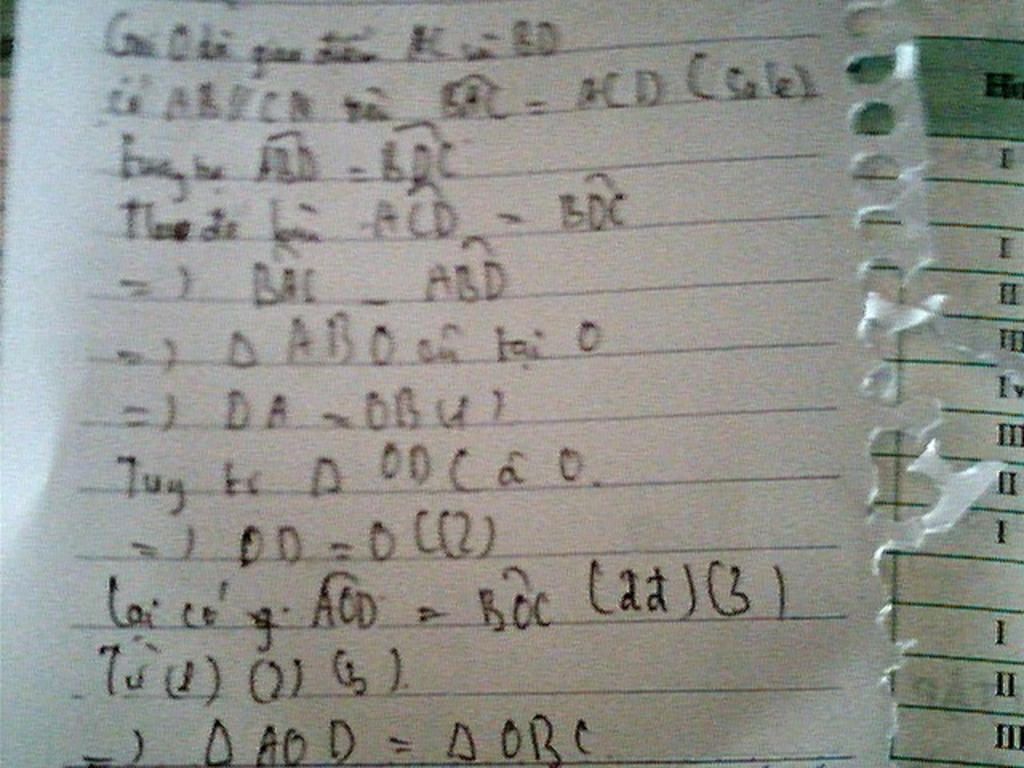 Gọi O là giao điểm AC và BD
Có AB // CD nên BAC = ACD (Sole)
Tương tự ABD = BDC
Theo đề bài ACD = BDC
=) BAC = ABD
=) Δ ABO cân tại O
=) OA = OB (1)
Tương tự Δ ODC cân O.
=) OD = OC (2)
Lại có góc AOD = BOC (đđ) (3)
Từ (1) (2) (3).
=) Δ AOD = Δ OBC
I
I
II
III
IV
III
II
I
I
II
III